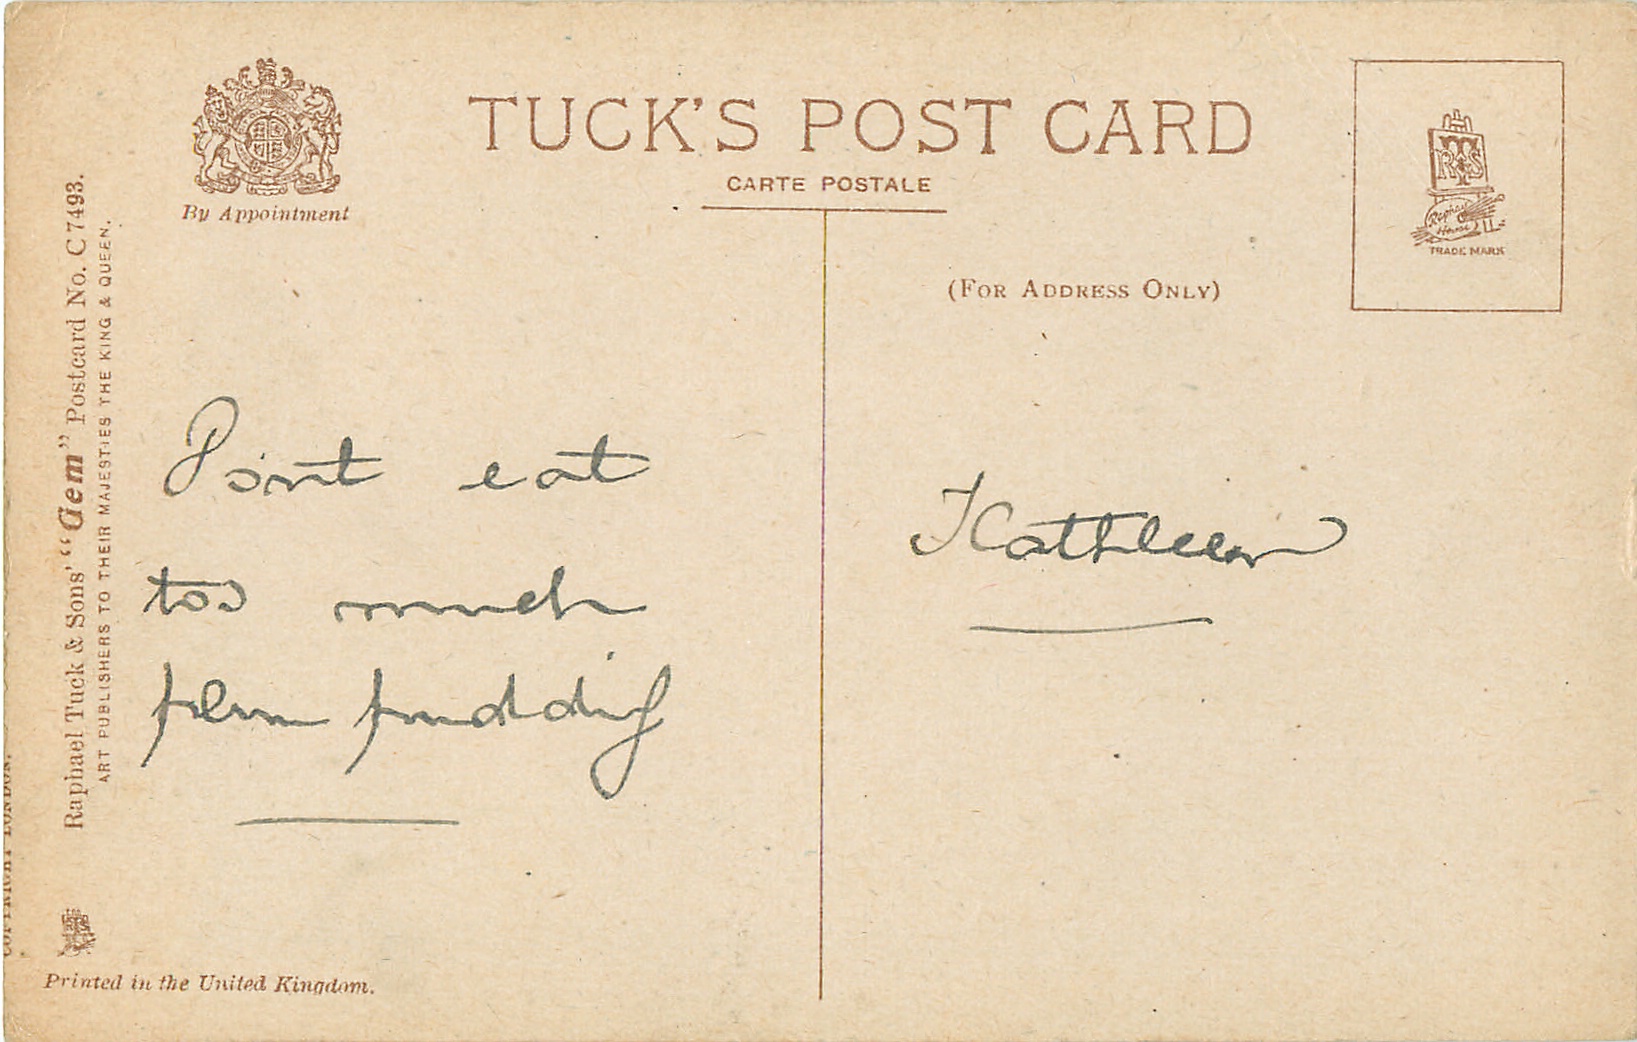 TUCK'S POST CARD
CARTE POSTALE
By Appointment
(FOR ADDRESS ONLY)
RTS
Raphael
House
TRADE MARK
Raphael Tuck & Sons' "Gem" Postcard No. C 7493.
ART PUBLISHERS TO THEIR MAJESTIES THE KING & QUEEN.
COPYRIGHT LONDON.
Don't eat
too much
plum pudding
Kathleen
Printed in the United Kingdom.